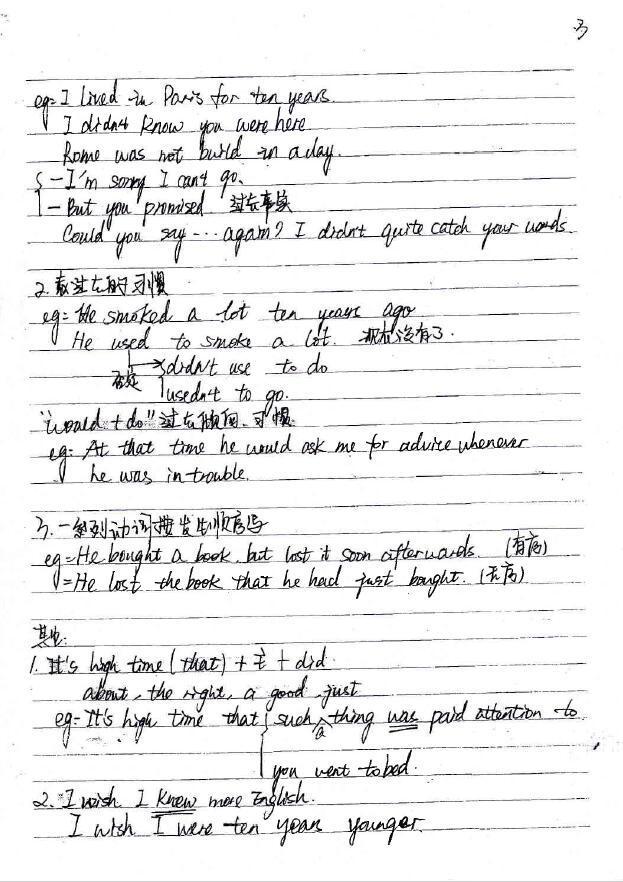 3
eg: I lived in Paris for ten years.
I didn't know you were here
Rome was not build in a day.
{ - I'm sorry I can't go.
- But you promised 过去事实
Could you say ... again? I didn't quite catch your words.
2. 表过去的习惯
eg: He smoked a lot ten years ago
He used to smoke a lot. 现在没有了.
否定 → { didn't use to do
usedn't to go.
"would + do" 过去倾向、习惯.
eg: At that time he would ask me for advice whenever
he was in trouble.
3. 一系列动词按发生顺序写
eg = He bought a book, but lost it soon afterwards. (有序)
= He lost the book that he had just bought. (无序)
其他:
1. It's high time (that) + 主 + did.
about, the right, a good, just
eg: It's high time that { such a thing was paid attention to
you went to bed.
2. I wish I knew more English.
I wish I were ten years younger.